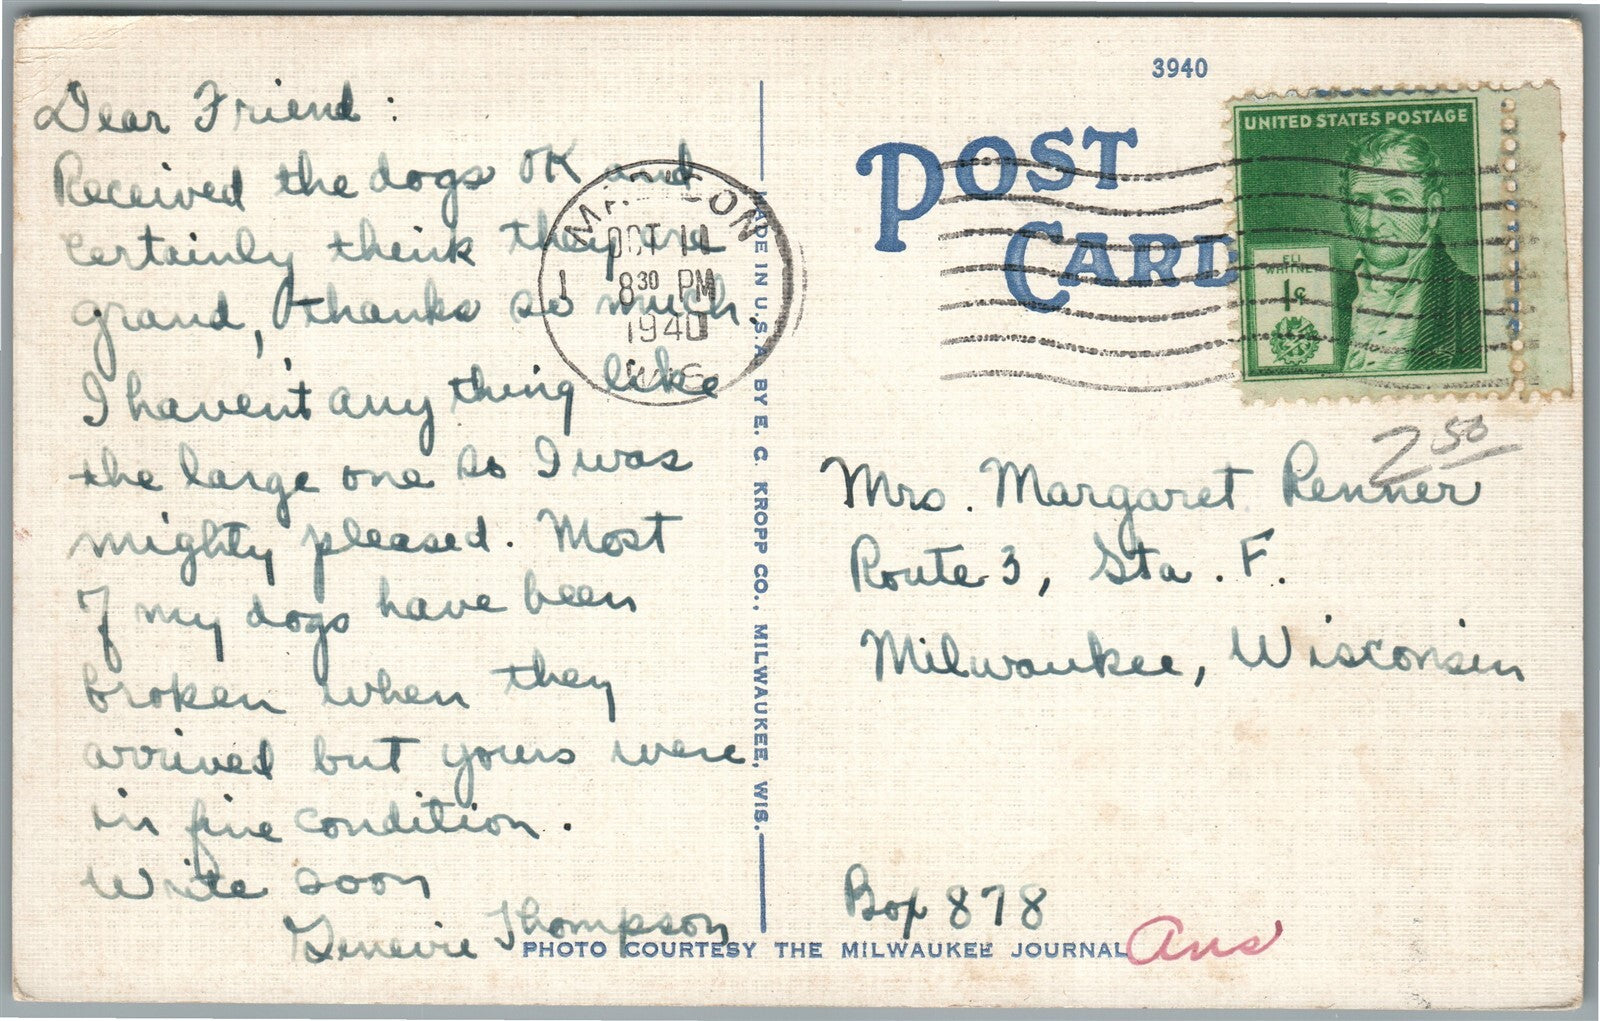 Dear Friend :
Received the dogs OK and
certainly think they are
grand, thanks so much.
I haven't any thing like
the large one so I was
mighty pleased. Most
of my dogs have been
broken when they
arrived but yours were
in fine condition.
Write soon
Genevie Thompson
MADISON
OCT 11
8 30 PM
1940
WIS
1
MADE IN U.S.A. BY E. C. KROPP CO., MILWAUKEE, WIS.
3940
POST
CARD
UNITED STATES POSTAGE
ELI
WHITNEY
1¢
2 50
Mrs. Margaret Renner
Route 3, Sta. F.
Milwaukee, Wisconsin
Box 878
PHOTO COURTESY THE MILWAUKEE JOURNAL
Ans